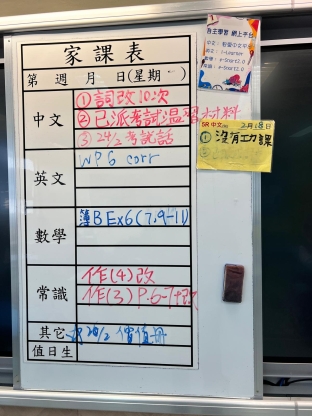 家課表
第 週 月 日(星期 )
中文
①詞改10次
②已派考試温習材料
③24/2 考說話
英文
WP6 corr
數學
簿BEx6(7,9-11)
常識
作(4)改
作(3)P.6-7+改
其它
20/2
值日生
自主學習 網上平台
5R 中文
2月18日
①沒有功課
②